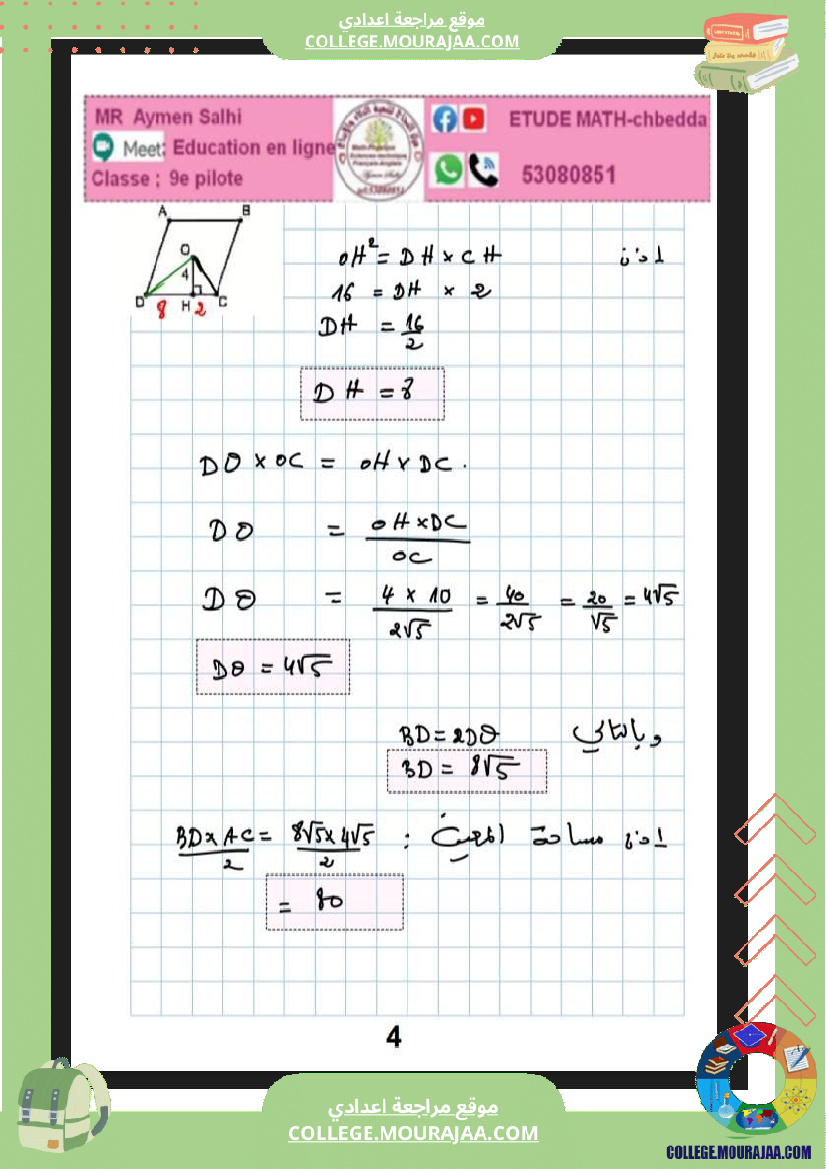 موقع مراجعة اعدادي
COLLEGE.MOURAJAA.COM
MR Aymen Salhi
Meet: Education en ligne
Classe ; 9e pilote
ETUDE MATH-chbedda
53080851
A B
O
4
D H C
8 2
اذن
OH² = DH × CH
16 = DH × 2
DH = 16/2
DH = 8
DO × OC = OH × DC.
DO = OH×DC/OC
DO = 4 × 10/2√5 = 40/2√5 = 20/√5 = 4√5
DO = 4√5
وبالتالي BD = 2DO
BD = 8√5
اذن مساحة المعين : BD×AC/2 = 8√5×4√5/2
= 80
4
موقع مراجعة اعدادي
COLLEGE.MOURAJAA.COM
COLLEGE.MOURAJAA.COM